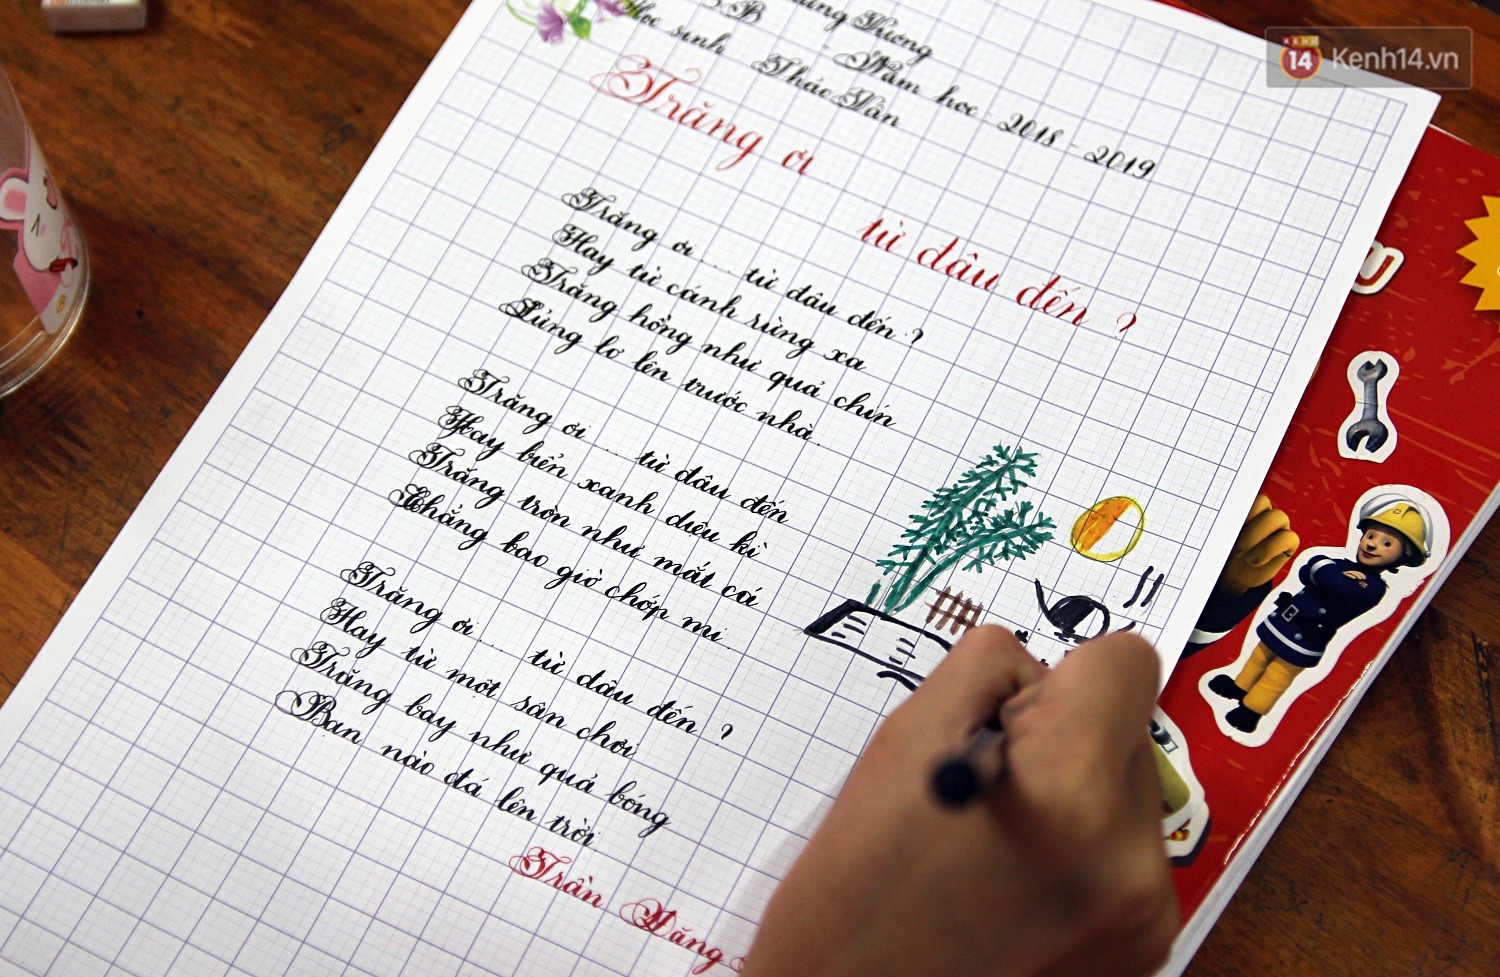 Kenh14.vn
3B
ùng Vương
Học sinh
- Năm học 2018 - 2019
Thác Vàn
Trăng ơi
từ đâu đến ?
Trăng ơi ... từ đâu đến ?
Hay từ cánh rừng xa
Trăng hồng như quả chín
Lửng lơ lên trước nhà.
Trăng ơi ... từ đâu đến
Hay biển xanh diệu kì
Trăng tròn như mắt cá
Chẳng bao giờ chớp mi.
Trăng ơi ... từ đâu đến ?
Hay từ một sân chơi
Trăng bay như quả bóng
Bạn nào đá lên trời
Trần Đăng